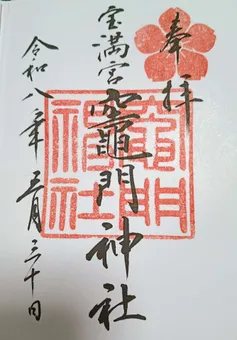 奉拝
宝満宮
竈門神社
令和八年五月三十日
竈門神社